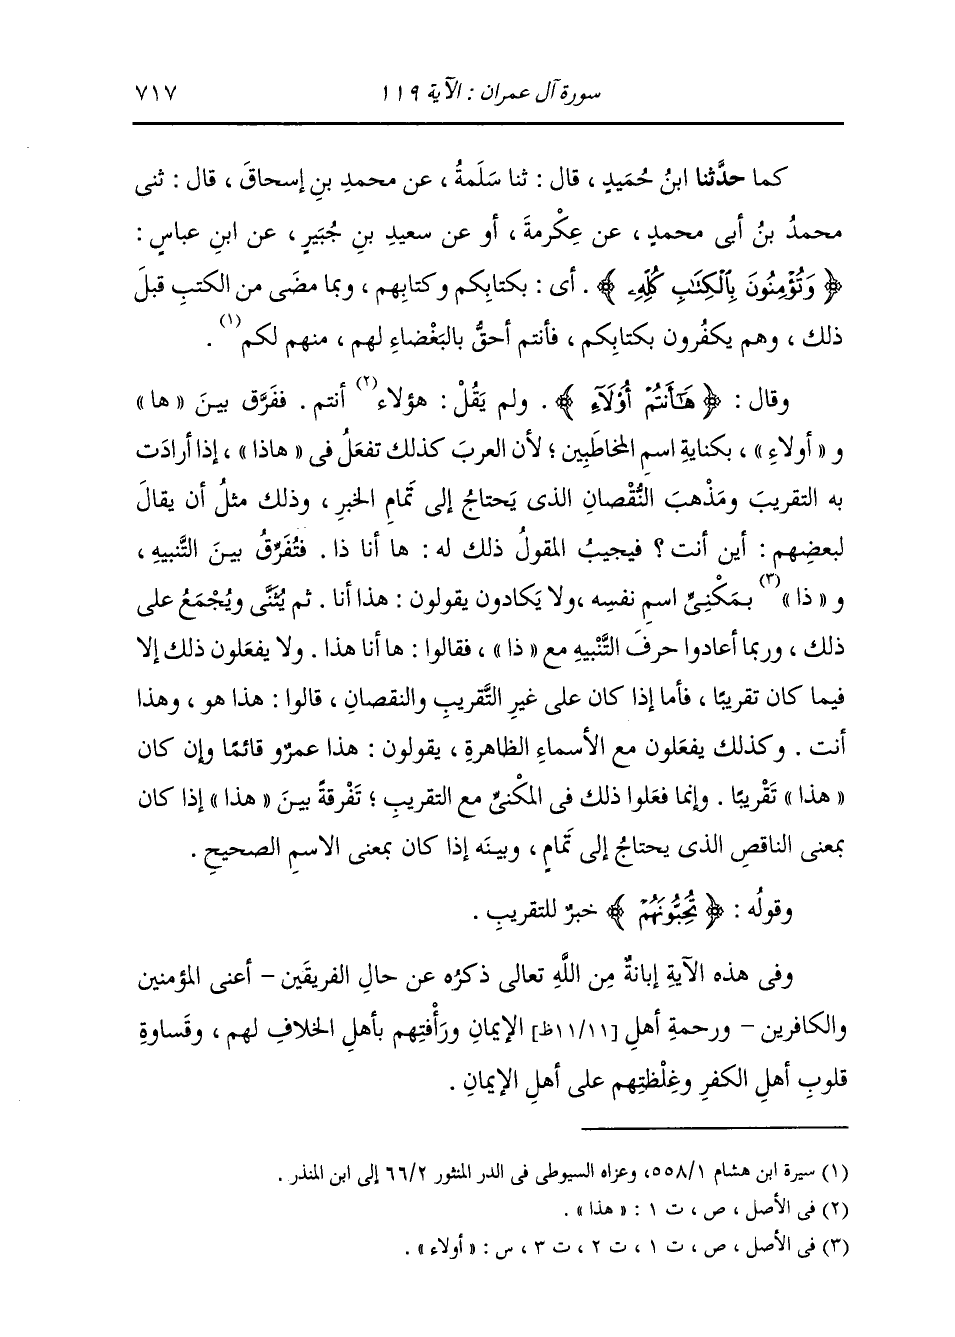 سورة آل عمران : الآية ١١٩ ٧١٧
كما حدَّثنا ابنُ حُمَيدٍ ، قال : ثنا سَلَمةُ ، عن محمدِ بنِ إسحاقَ ، قال : ثنى
محمدُ بنُ أبى محمدٍ ، عن عِكْرمةَ ، أو عن سعيدِ بنِ جُبَيرٍ ، عن ابنِ عباسٍ :
﴿ وَتُؤْمِنُونَ بِٱلْكِتَٰبِ كُلِّهِۦ ﴾ . أى : بكتابِكم وكتابِهم ، وبما مضَى من الكتبِ قبلَ
ذلك ، وهم يكفُرون بكتابِكم ، فأنتم أحقُّ بالبَغْضاءِ لهم ، منهم لكم(١) .
وقال : ﴿ هَٰٓأَنتُمْ أُوْلَآءِ ﴾ . ولم يَقُلْ : هؤلاء(٢) أنتم . ففَرَّق بينَ « ها »
و « أولاءِ » ، بكنايةِ اسمِ المخاطَبين ؛ لأن العربَ كذلك تفعَلُ فى « هاذا » ، إذا أرادَت
به التقريبَ ومَذْهبَ النُّقصانِ الذى يَحتاجُ إلى تَمَامِ الخبرِ ، وذلك مثلُ أن يقالَ
لبعضِهم : أين أنت ؟ فيجيبُ المقولُ ذلك له : ها أنا ذا . فتُفَرِّقُ بينَ التَّنبيهِ ،
و « ذا »(٣) بمَكْنِىِّ اسمِ نفسِه ،ولا يَكادون يقولون : هذا أنا . ثم يُثَنَّى ويُجْمَعُ على
ذلك ، وربما أعادوا حرفَ التَّنْبيهِ مع « ذا » ، فقالوا : ها أنا هذا . ولا يفعَلون ذلك إلا
فيما كان تقريبًا ، فأما إذا كان على غيرِ التَّقريبِ والنقصانِ ، قالوا : هذا هو ، وهذا
أنت . وكذلك يفعَلون مع الأسماءِ الظاهرةِ ، يقولون : هذا عمرٌو قائمًا وإن كان
« هذا » تَقْريبًا . وإنما فعَلوا ذلك فى المكْنىِّ مع التقريبِ ؛ تَفْرقةً بينَ « هذا » إذا كان
بمعنى الناقصِ الذى يحتاجُ إلى تَمَامٍ ، وبينَه إذا كان بمعنى الاسمِ الصحيحِ .
وقولُه : ﴿ تُحِبُّونَهُمْ ﴾ خبرٌ للتقريبِ .
وفى هذه الآيةِ إبانةٌ مِن اللَّهِ تعالى ذكرُه عن حالِ الفريقَين – أعنى المؤمنين
والكافرين – ورحمةِ أهلِ [١١/١١ظ] الإيمانِ ورَأْفتِهم بأهلِ الخلافِ لهم ، وقَساوةِ
قلوبِ أهلِ الكفرِ وغِلْظتِهم على أهلِ الإيمانِ .
(١) سيرة ابن هشام ٥٥٨/١، وعزاه السيوطى فى الدر المنثور ٦٦/٢ إلى ابن المنذر .
(٢) فى الأصل ، ص ، ت ١ : « هذا » .
(٣) فى الأصل ، ص ، ت ١ ، ت ٢ ، ت ٣ ، س : « أولاء » .